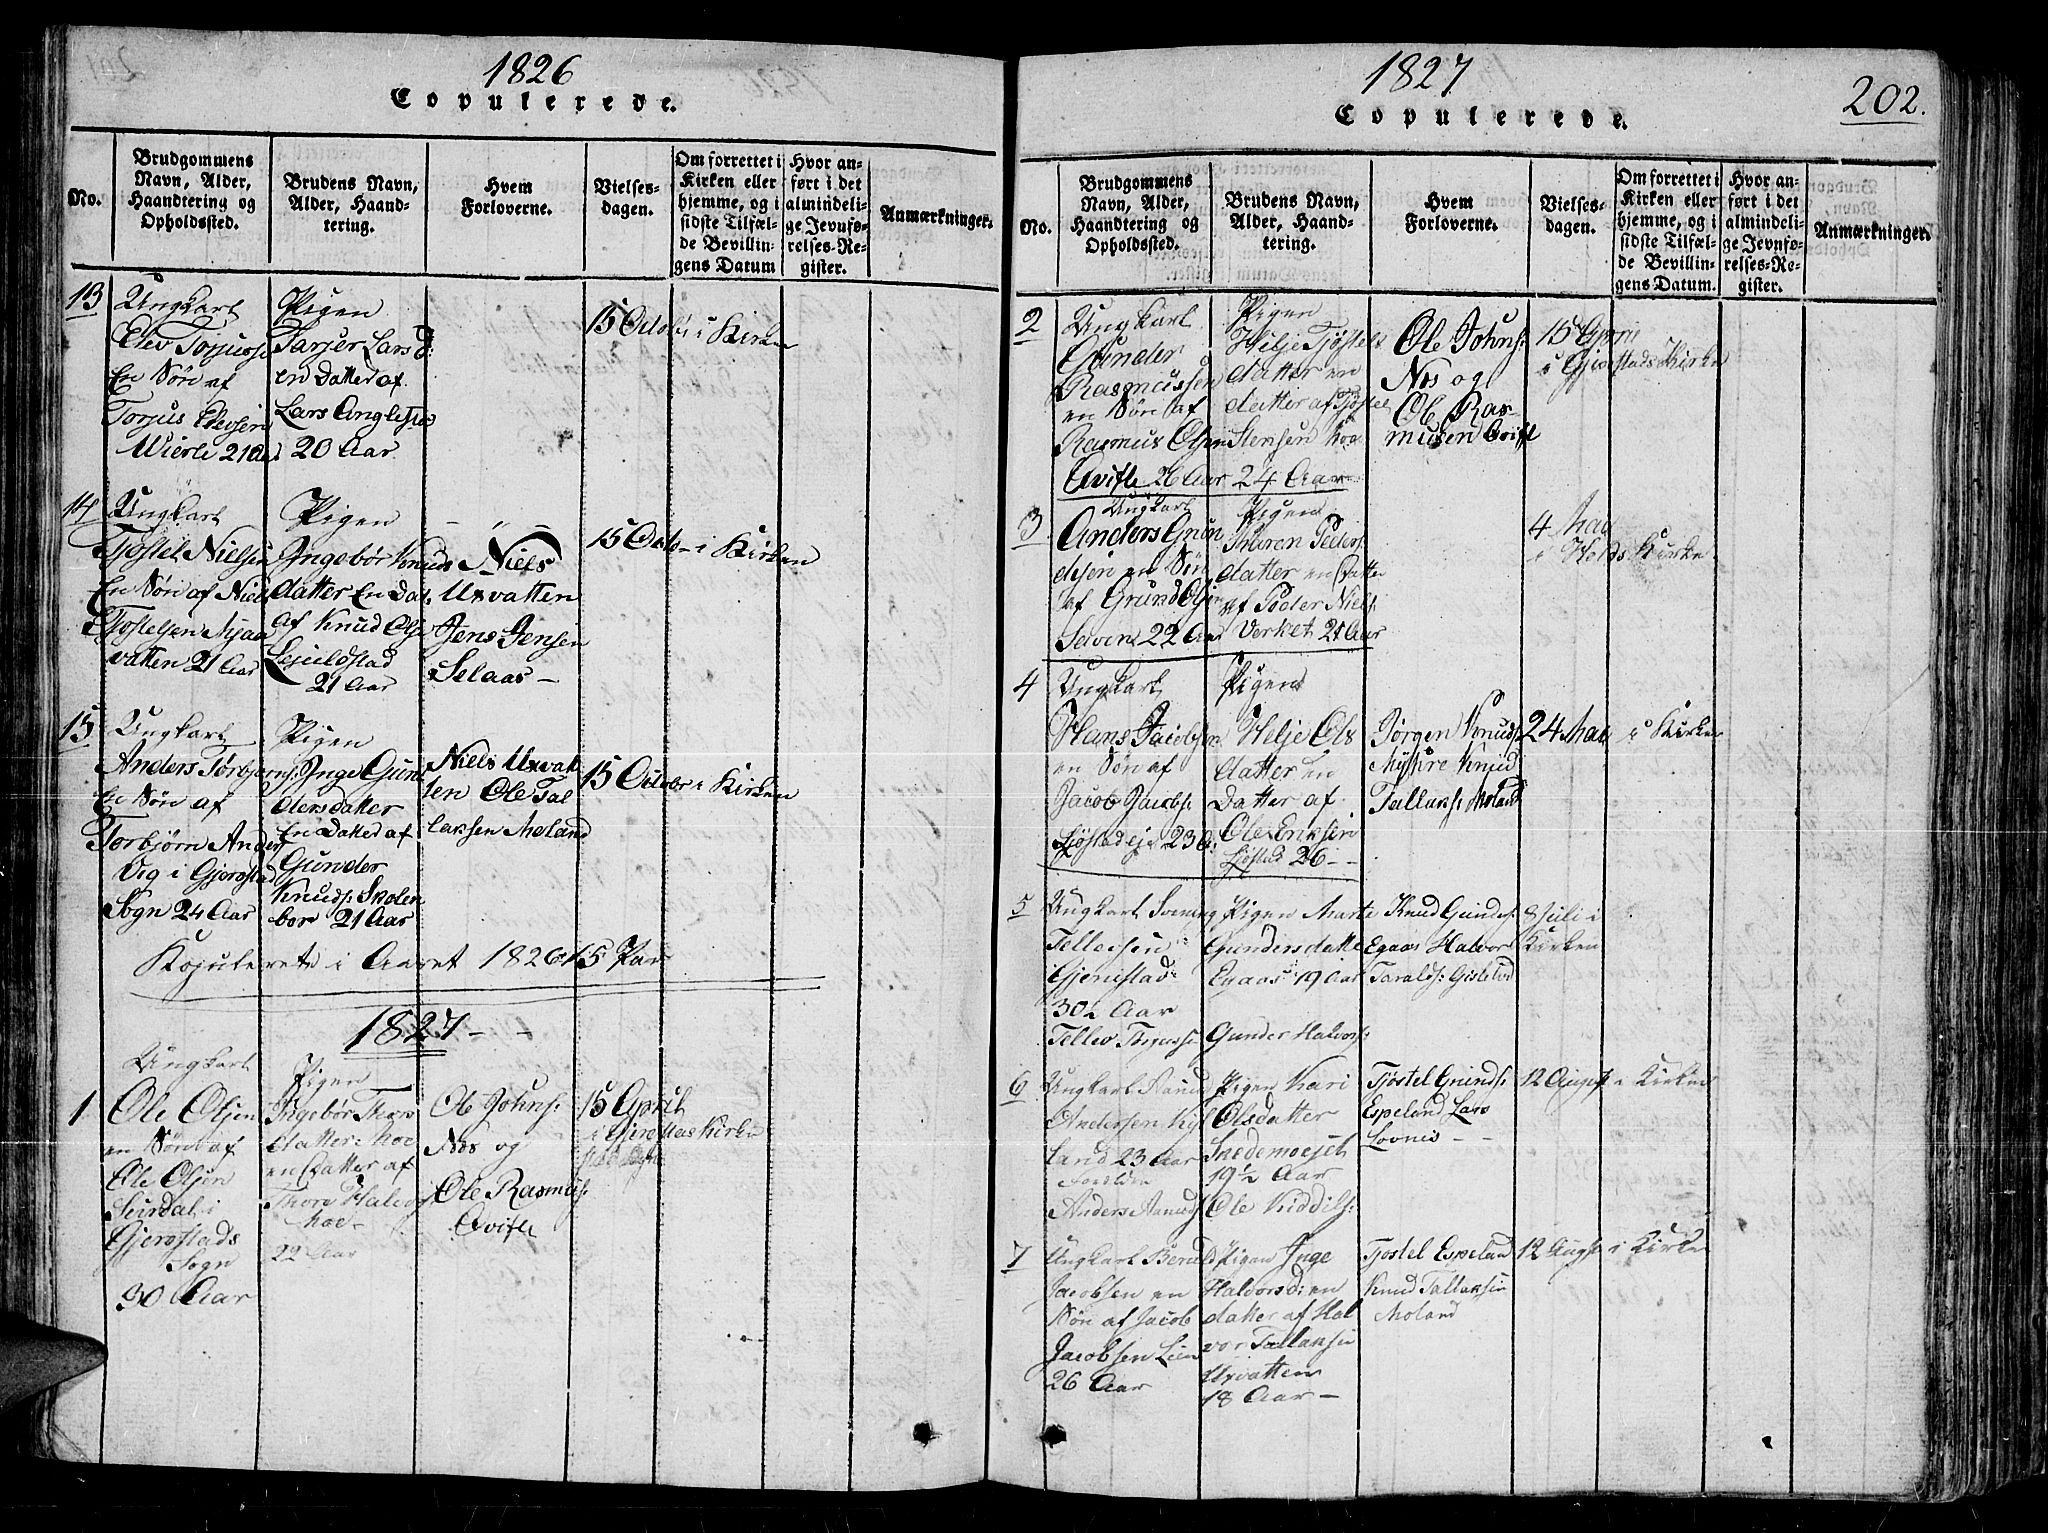 1826
Copulerede.
No.
Brudgommens
Navn, Alder,
Haandtering og
Opholdssted.
Brudens Navn,
Alder, Haand-
tering.
Hvem
Forloverne.
Vielses-
dagen.
Om forrettet i
Kirken eller
hjemme, og i
sidste Tilfæl-
de Bevillin-
gens Datum
Hvor an-
ført i det
almindeli-
ge Jevnfø-
relses-Re-
gister.
Anmærkninger.
13
Ungkarl
Elev Torjuss
En Søn af
Torjus Elevsen
Wierli 21 Aar
Pigen
Tarjer Lars d:
en Datter af
Lars
20 Aar
15 Octob: i Kirken
14
Ungkarl
Tjostel Nielsen
En Søn af Niels
Tjostelsen
vatten 21 Aar
Pigen
Ingebør Knuds
datter En Dat.
af Knud Ols
21 Aar
Niels
Uxvatten
Jens Jensen
Selaas —
15 Octo - i Kirken
15
Ungkarl
Anders Torbjørns:
En Søn af
Torbjørn Anders
Vig i Gjerestad
Sogn 24 Aar
Pigen
Inge Gun
dersdatter
En Datter af
Gunder
Knuds: Skolen
bor 21 Aar
Niels Uxvat
ten Ole Tal
laksen Moland
15 Octobr i Kirken
Kopulerete i Aaret 1826 15 Par
1827 - -
1
Ungkarl
Ole Olsen
en Søn af
Ole Olsen
Surdal i
Gjerestads
Sogn
30 Aar
Pigen
Ingebør Thors
datter Moe
en Datter af
Thore Halvo
Moe -
22 Aar
Ole Johns:
Næs og
Ole Rasmus:
Qvifte
15 April
i Gjerestas Kirke
1827
202.
Copulerede.
No.
Brudgommens
Navn, Alder,
Haandtering og
Opholdssted.
Brudens Navn,
Alder, Haand-
tering.
Hvem
Forloverne.
Vielses-
dagen.
Om forrettet i
Kirken eller
hjemme, og i
sidste Tilfæl-
de Bevillin-
gens Datum.
Hvor an-
ført i det
almindeli-
ge Jevnfø-
relses-Re-
gister.
Anmærkninger.
2
Ungkarl
Gunder
Rasmussen
en Søn af
Rasmus Olsen
Qvifte 26 Aar
Pigen
Helje Tjøstels
datter en
datter af Tjøstel
Stensen Moe
24 Aar
Ole Johns:
Næs og
Ole Ras-
musen Qvift
15 April
i Gjerestads Kirke
3
Ungkarl
Anders Grun
desen en Søn
af Grund Olsen
22 Aar
Pigen
Maren Peders
datter en Datter
af Peder Niels:
Verket 21 Aar
4 Mai
i Holds Kirke
4
Ungkarl
Hans Jacobsen
en Søn af
Jacob Jacobs:
23 A:
Pigen
Helje Ols
datter en
Datter af
Ole Eriksen
26 - -
Jørgen Knuds
Myhre Knud
Tallaks: Moland
24 Mai i Kirken
5
Ungkarl Svening
Tellefsen
Gjerestad
30½ Aar
Tellev
Pigen Marte
Gundersdatte
Egaas 19 Aar
Gunder Halvors:
Knud Gunders:
Egaas Halvor
Taralds:
8 Juli i
Kirken
6
Ungkarl Aanud
Andersen
land 23 Aar
Anders Aanuds
Pigen Kari
Olsdatter
19½ Aar
Ole Kiddils:
Tjøstel Gunds:
Espeland Lars
12 August i Kirken
7
Ungkarl Berulf
Jacobsen en
Søn af Jacob
Jacobsen Lien
26 Aar
Pigen Inge
Halvorsd: en
datter af Hal
vor Tallaksen
Uxvatten
18 Aar -
Tjostel Espeland
Knud Tallaksen
Moland
12 Augst i Kirken